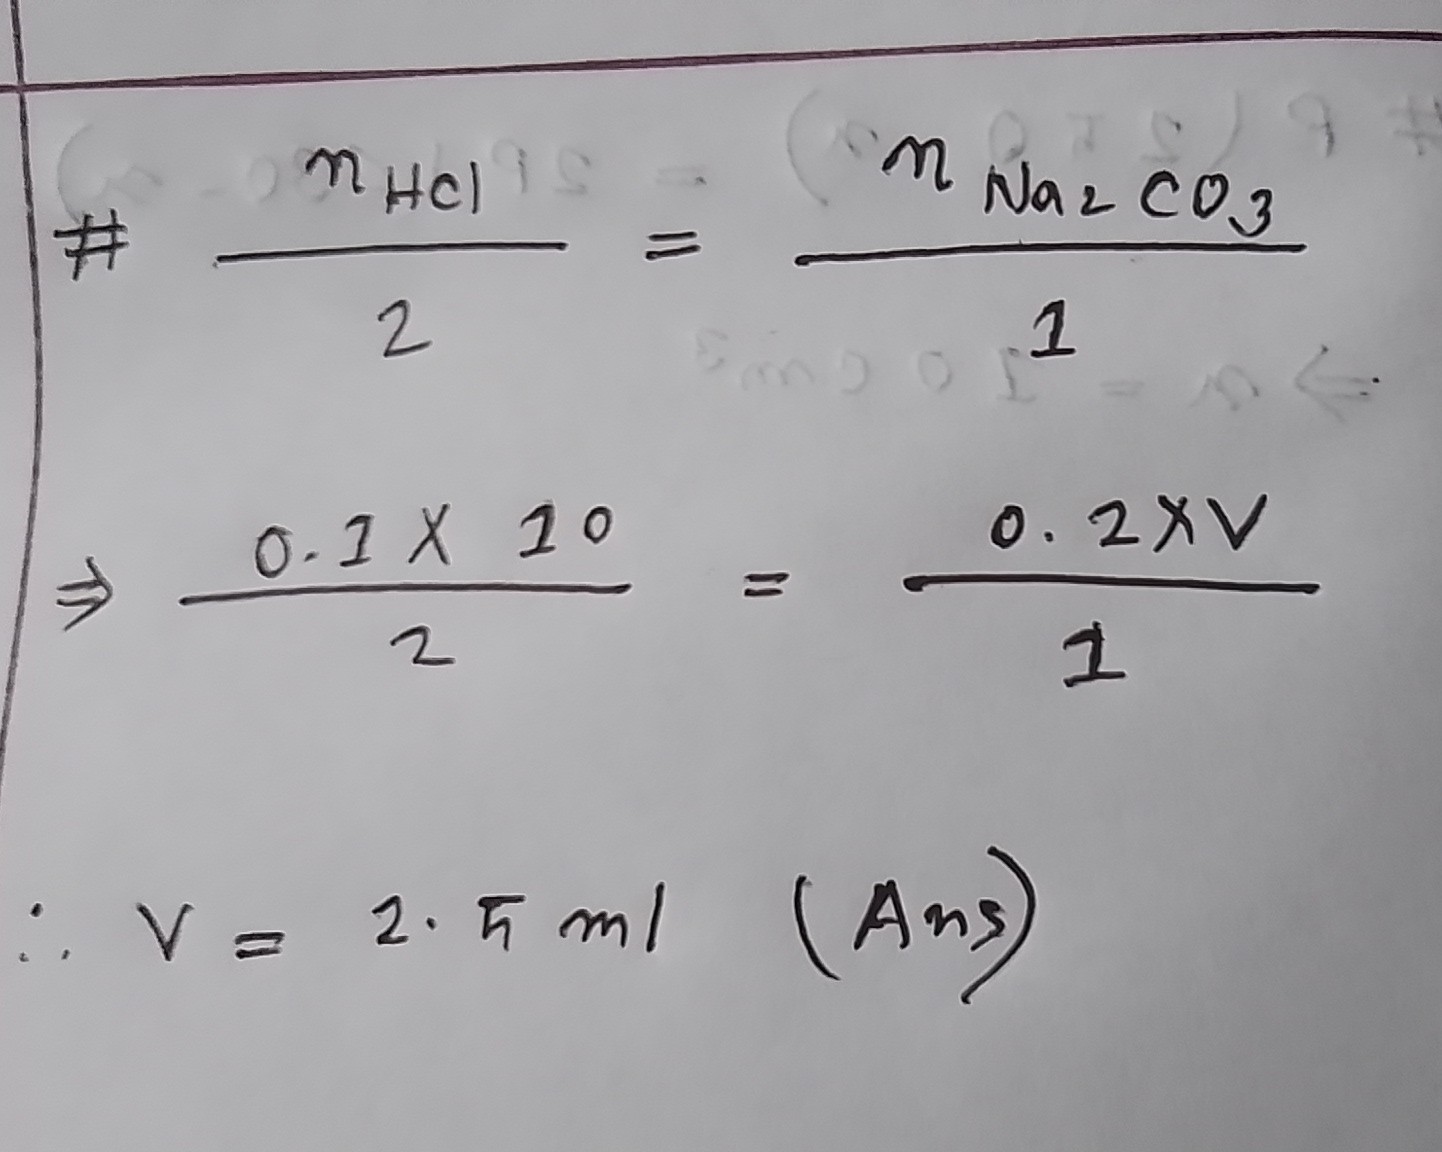 # n HCl / 2 = n Na2CO3 / 1
⇒ 0.1 X 10 / 2 = 0.2 X V / 1
∴ V = 2.5 ml (Ans)